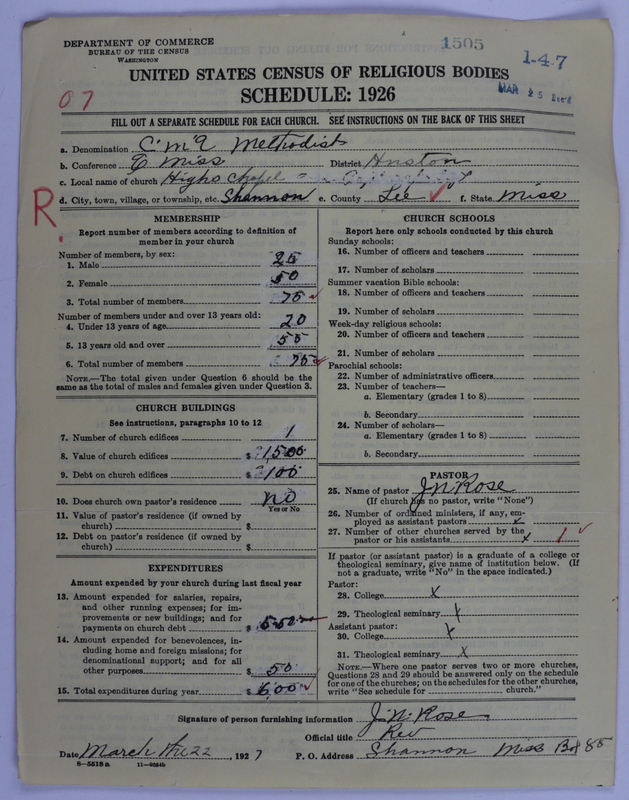 DEPARTMENT OF COMMERCE
BUREAU OF THE CENSUS
WASHINGTON
1505
1-47
MAR 25
07
UNITED STATES CENSUS OF RELIGIOUS BODIES
SCHEDULE: 1926
FILL OUT A SEPARATE SCHEDULE FOR EACH CHURCH. SEE INSTRUCTIONS ON THE BACK OF THIS SHEET
a. Denomination C.M.E Methodist
b. Conference E Miss District Huston
c. Local name of church Highs Chapel
d. City, town, village, or township, etc. Shannon e. County Lee f. State Miss
R.
MEMBERSHIP
Report number of members according to definition of
member in your church
Number of members, by sex:
1. Male 25
2. Female 50
3. Total number of members 75
Number of members under and over 13 years old:
4. Under 13 years of age 20
5. 13 years old and over 55
6. Total number of members 75
NOTE.—The total given under Question 6 should be the
same as the total of males and females given under Question 3.
CHURCH BUILDINGS
See instructions, paragraphs 10 to 12
7. Number of church edifices 1
8. Value of church edifices $ 1500
9. Debt on church edifices $ 100
10. Does church own pastor's residence no
Yes or No
11. Value of pastor's residence (if owned by
church) $
12. Debt on pastor's residence (if owned by
church) $
EXPENDITURES
Amount expended by your church during last fiscal year
13. Amount expended for salaries, repairs,
and other running expenses; for im-
provements or new buildings; and for
payments on church debt $ 550
14. Amount expended for benevolences, in-
cluding home and foreign missions; for
denominational support; and for all
other purposes $ 50
15. Total expenditures during year $ 600
CHURCH SCHOOLS
Report here only schools conducted by this church
Sunday schools:
16. Number of officers and teachers
17. Number of scholars
Summer vacation Bible schools:
18. Number of officers and teachers
19. Number of scholars
Week-day religious schools:
20. Number of officers and teachers
21. Number of scholars
Parochial schools:
22. Number of administrative officers
23. Number of teachers—
a. Elementary (grades 1 to 8)
b. Secondary
24. Number of scholars—
a. Elementary (grades 1 to 8)
b. Secondary
PASTOR
25. Name of pastor J N Rose
(If church has no pastor, write "None")
26. Number of ordained ministers, if any, em-
ployed as assistant pastors x
27. Number of other churches served by the
pastor or his assistants x 1
If pastor (or assistant pastor) is a graduate of a college or
theological seminary, give name of institution below. (If
not a graduate, write "No" in the space indicated.)
Pastor:
28. College x
29. Theological seminary x
Assistant pastor:
30. College x
31. Theological seminary x
NOTE.—Where one pastor serves two or more churches,
Questions 28 and 29 should be answered only on the schedule
for one of the churches; on the schedules for the other churches,
write "See schedule for church."
Signature of person furnishing information J. N. Rose
Official title Rev
Date March the 22, 1927 P. O. Address Shannon Miss Box 85
8-5518a 11-9054b